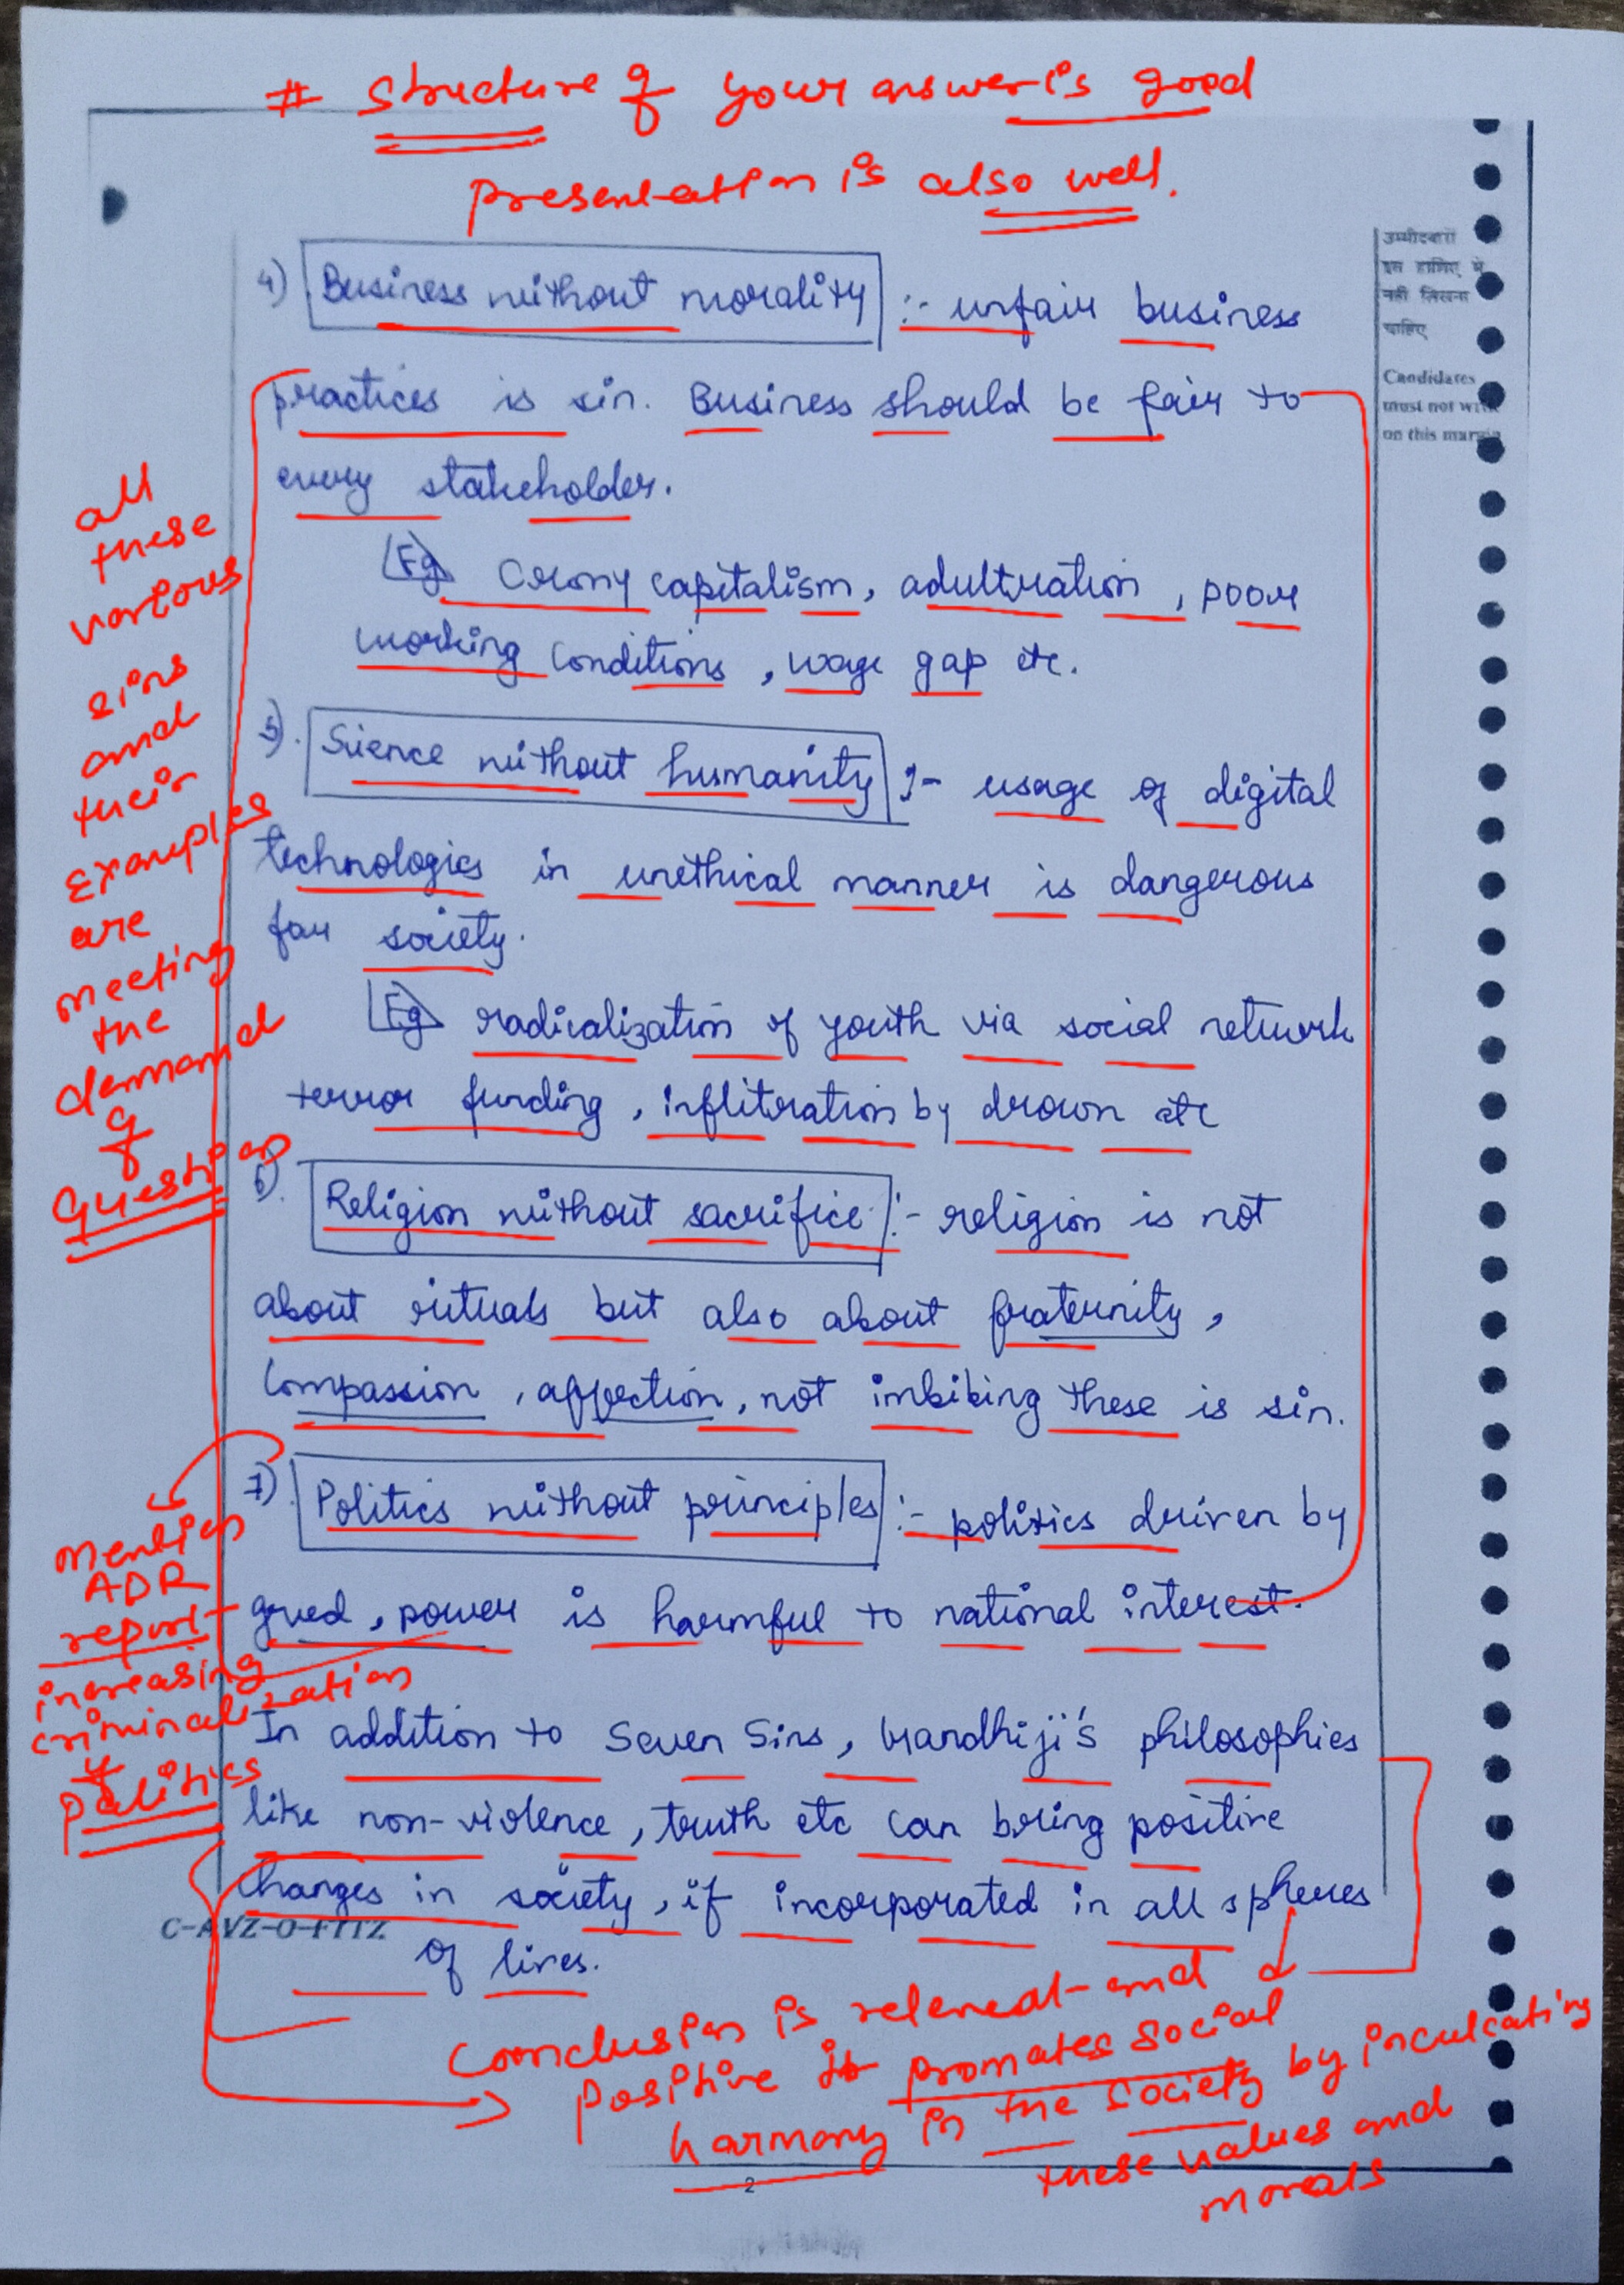 # Structure of your answer is good
presentation is also well.
उम्मीदवारों
इस हाशिए में
नहीं लिखना
चाहिए
Candidates
must not write
on this margin
4) Business without morality :- unfair business
practices is sin. Business should be fair to
every stakeholder.
Eg Crony capitalism, adultration, poor
working conditions, wage gap etc.
5). Science without humanity :- usage of digital
technologies in unethical manner is dangerous
for society.
Eg radicalization of youth via social network
terror funding, infliteration by drown etc
6). Religion without sacrifice :- religion is not
about rituals but also about fraternity,
compassion, affection, not imbibing these is sin.
7). Politics without principles :- politics driven by
greed, power is harmful to national interest.
In addition to Seven Sins, Gandhiji's philosophies
like non-violence, truth etc can bring positive
changes in society, if incorporated in all spheres
of lives.
all
these
various
sins
and
their
Examples
are
meeting
the
demand
of
Question
Mention
ADR
report-
increasing
criminalization
of
politics
C-AVZ-O-FTTZ
Conclusion is relevent and
positive it promotes social
harmony in the society by inculcating
these values and
morals
2